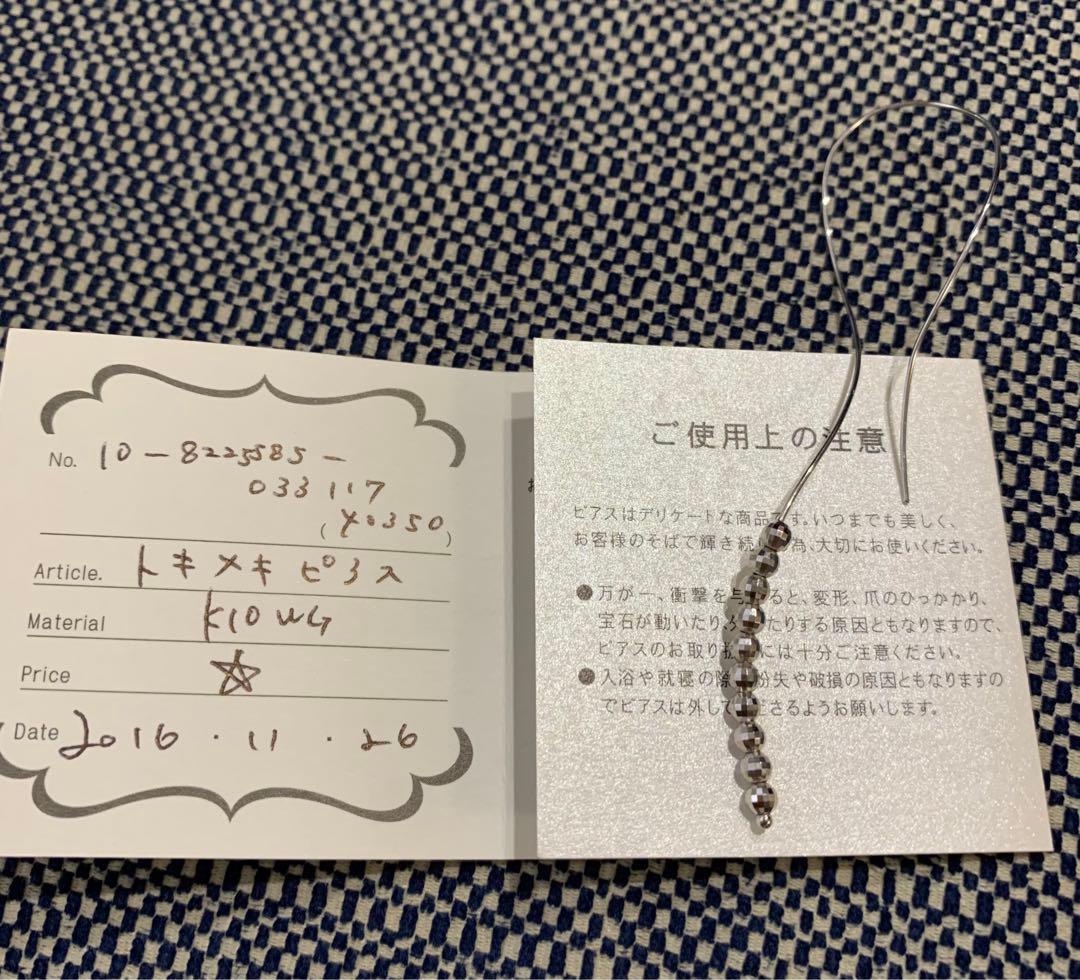 No. 10-8225585-
033117
(Y0350)
Article. トキメキピアス
Material K10WG
Price ☆
Date 2016・11・26
ご使用上の注意
ピアスはデリケートな商品です。いつまでも美しく、
お客様のそばで輝き続け為、大切にお使いください。
●万が一、衝撃を与ると、変形、爪のひっかかり、
宝石が動いたり、たりする原因ともなりますので、
ピアスのお取り扱には十分ご注意ください。
●入浴や就寝の際 紛失や破損の原因ともなりますの
でピアスは外して ださるようお願いします。